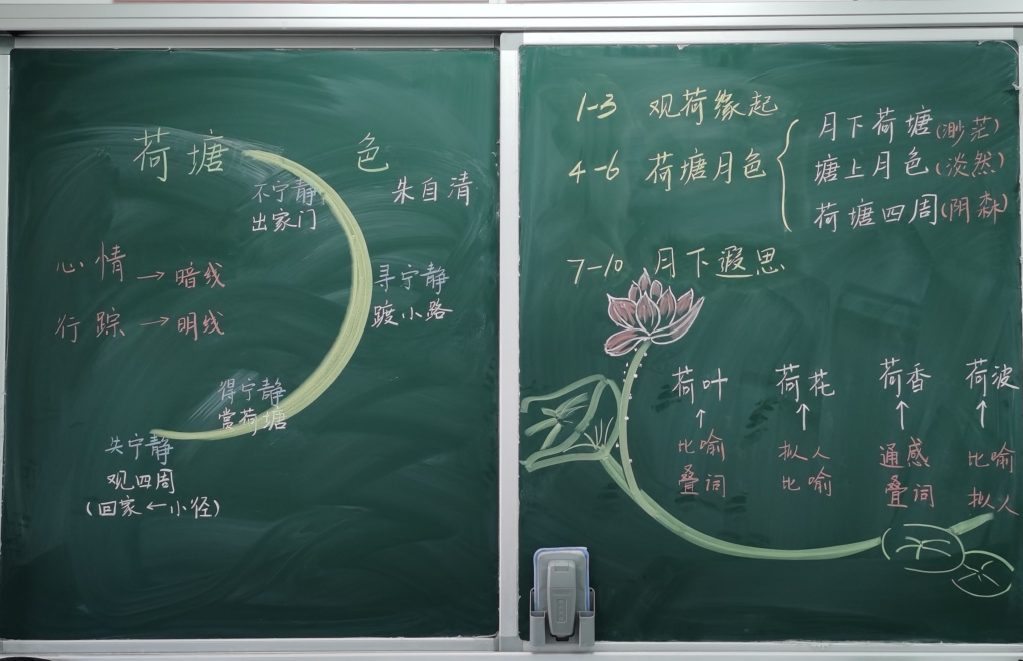 荷塘 色
朱自清
不宁静
出家门
寻宁静
踱小路
得宁静
赏荷塘
失宁静
观四周
(回家←小径)
心情→暗线
行踪→明线
1-3 观荷缘起
4-6 荷塘月色
月下荷塘(渺茫)
塘上月色(淡然)
荷塘四周(阴森)
7-10 月下遐思
荷叶 荷花 荷香 荷波
↑ ↑ ↑ ↑
比喻 拟人 通感 比喻
叠词 比喻 叠词 拟人